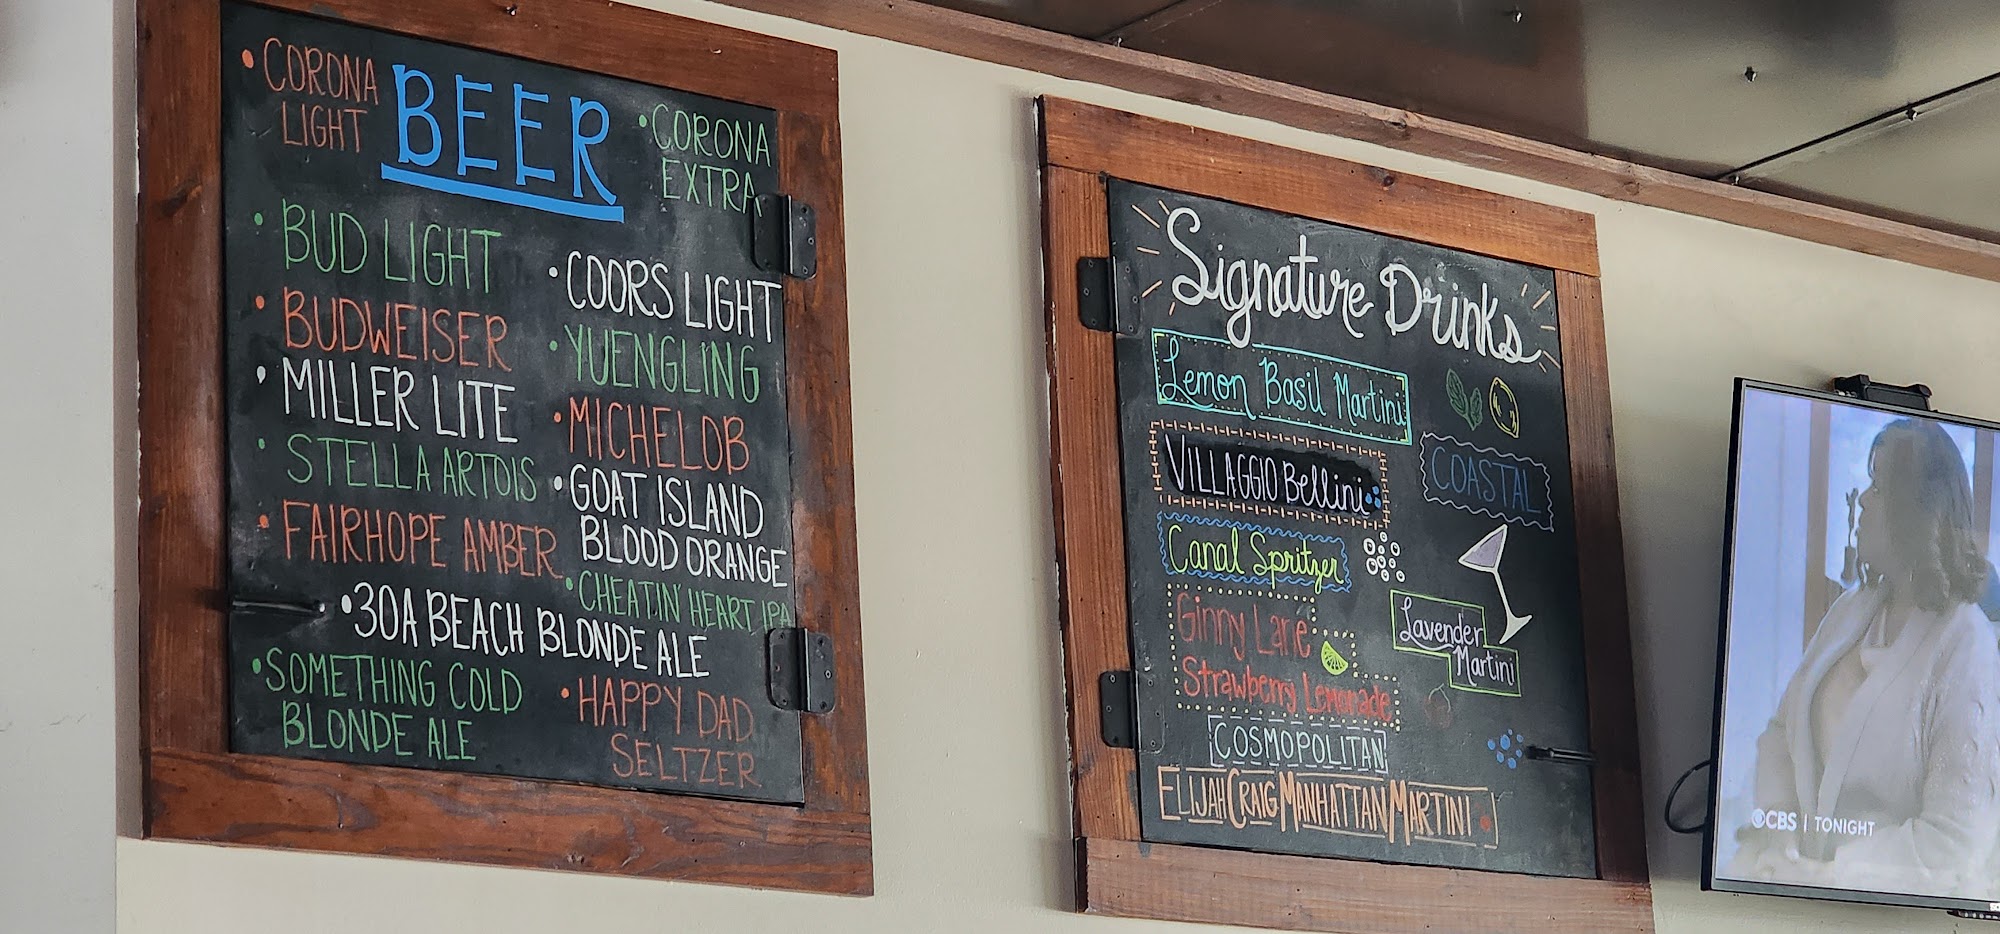 BEER
• CORONA
LIGHT
• CORONA
EXTRA
• BUD LIGHT
• BUDWEISER
• MILLER LITE
• STELLA ARTOIS
• FAIRHOPE AMBER
• COORS LIGHT
• YUENGLING
• MICHELOB
• GOAT ISLAND
BLOOD ORANGE
• CHEATIN' HEART IPA
• 30A BEACH BLONDE ALE
• SOMETHING COLD
BLONDE ALE
• HAPPY DAD
SELTZER
Signature Drinks
Lemon Basil Martini
VILLAGGIO Bellini
COASTAL
Canal Spritzer
Ginny Lane
Strawberry Lemonade
Lavender
Martini
COSMOPOLITAN
ELIJAH CRAIG MANHATTAN MARTINI
CBS | TONIGHT